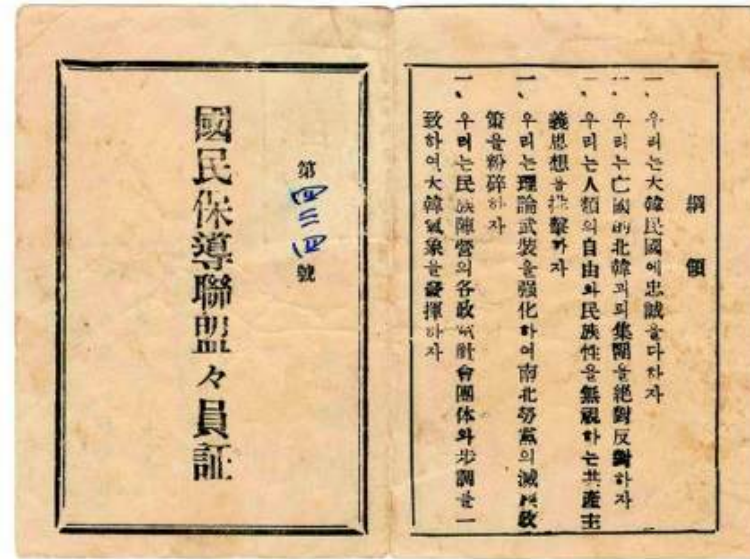 綱領
一、우리는大韓民國에忠誠을다하자
一、우리는亡國的北韓괴뢰集團을絕對反對하자
一、우리는人類의自由와民族性을無視하는共產主
義思想을排擊하자
一、우리는理論武裝을强化하여南北勞黨의滅族政
策을粉碎하자
一、우리는民族陣營의各政黨社會團体와步調를一
致하여大韓氣象을發揮하자
第 號
國民保導聯盟々員証